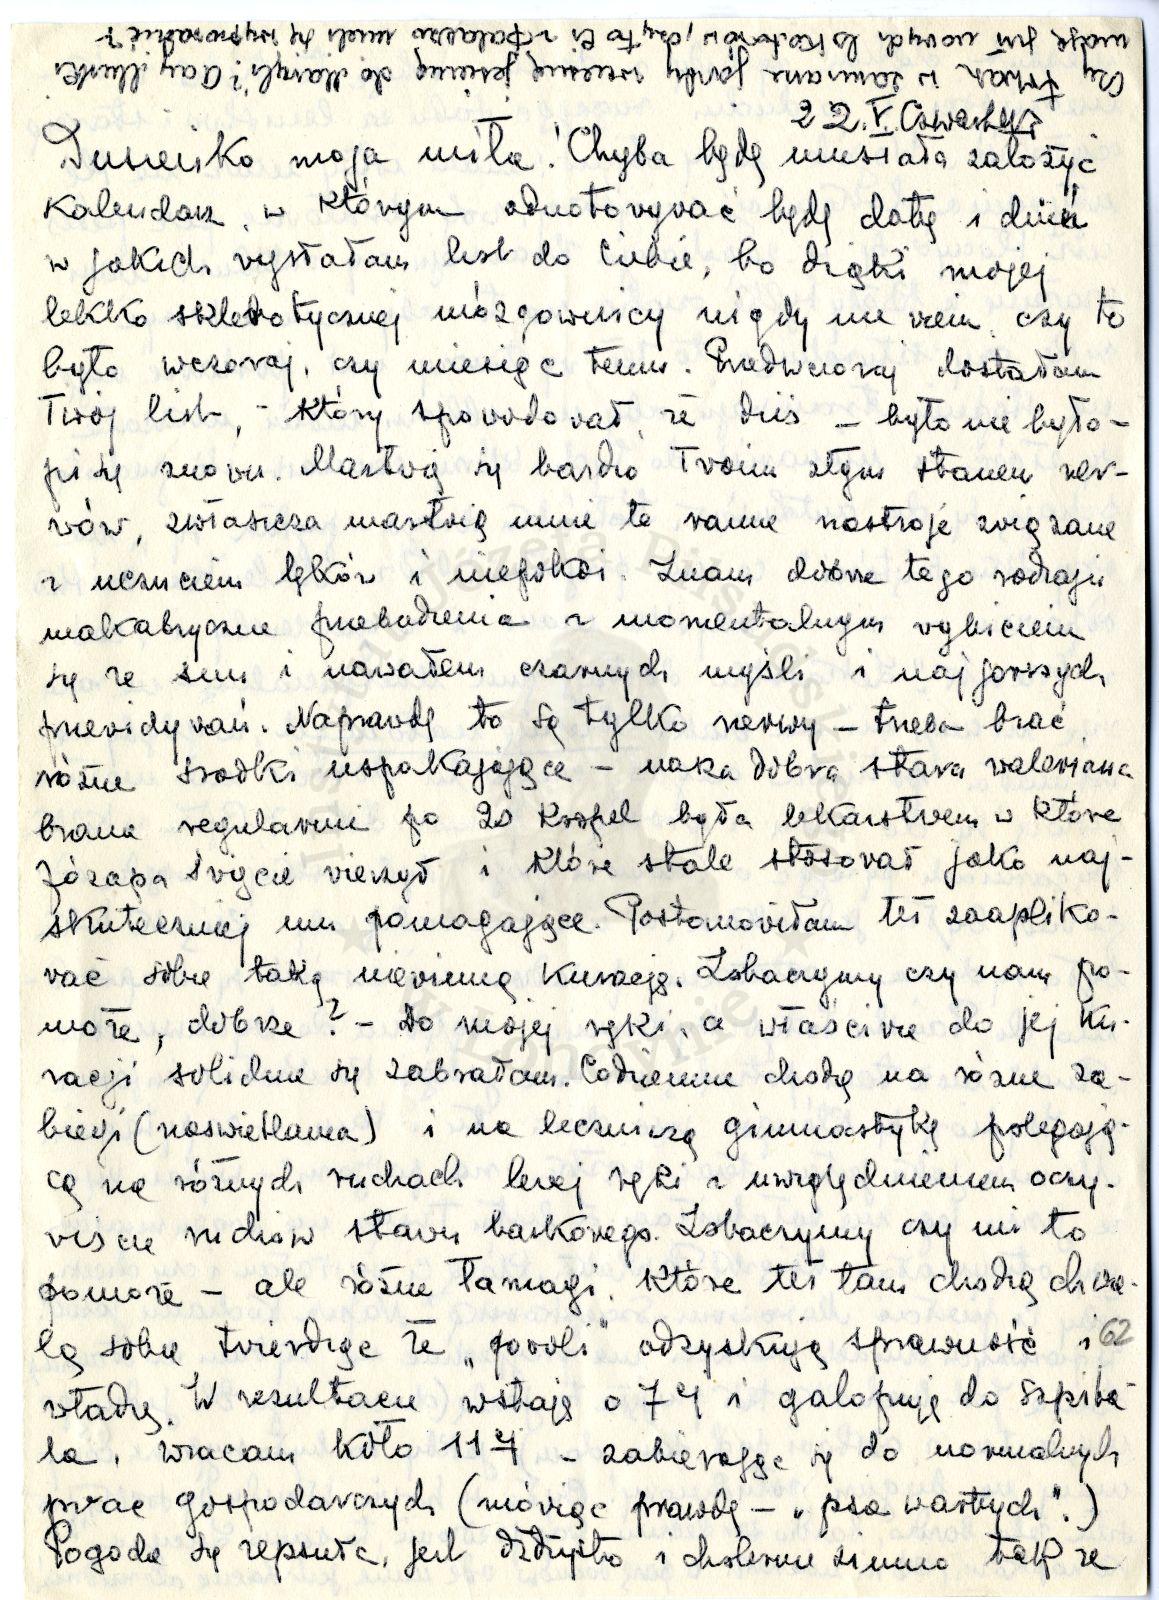 Czy Turah w zamiarze jazdy wczesną jesienią do Maryli? Czy Iluski
mają już nowych lokatorów, czy to ci z Palacza mieli się wyprowadzić?
22.V. Czwartek
Dusieńko moja miła! Chyba będę musiała założyć
kalendarz w którym odnotowywać będę datę i dzień
w jakich wysłałam list do Ciebie, bo dzięki mojej
lekko sklerotycznej mózgownicy nigdy nie wiem czy to
było wczoraj, czy miesiąc temu. Przedwczoraj dostałam
Twój list, – który spowodował, że dziś – było nie było –
piszę znowu. Martwię się bardzo Twoim złym stanem ner-
wów, zwłaszcza martwią mnie te ranne nastroje związane
z uczuciem lęków i niepokoi. Znam dobrze tego rodzaju
makabryczne przebudzenia z momentalnym wybiciem
się ze snu i nawałem czarnych myśli i najgorszych
przewidywań. Naprawdę to są tylko nerwy – trzeba brać
różne środki uspakajające – nasza dobra stara waleriana
brana regularnie po 20 kropel była lekarstwem w które
Józapa święcie wierzył i które stale stosował jako naj-
skuteczniej mu pomagające. Postanowiłam też zaapliko-
wać sobie taką niewinną kurację. Zobaczymy czy nam po-
może, dobrze? – Do mojej ręki, a właściwie do jej ku-
racji solidnie się zabrałam. Codziennie chodzę na różne za-
biegi (naświetlania) i na leczniczą gimnastykę polegają-
cą na różnych ruchach lewej ręki z uwzględnieniem oczy-
wiście ruchów stawu barkowego. Zobaczymy czy mi to
pomoże – ale różne łamagi, które też tam chodzą chwa-
lą sobie twierdząc że „powoli" odzyskują sprawność i
władzę. W rezultacie wstaję o 7 ej i galopuję do szpita-
la, wracam koło 11 ej – zabierając się do normalnych
prac gospodarczych (mówiąc prawdę – „psa wartych".)
Pogoda się zepsuła, jest dżdżysto i cholernie zimno tak że
62
Instytut Józefa Piłsudskiego
w Londynie